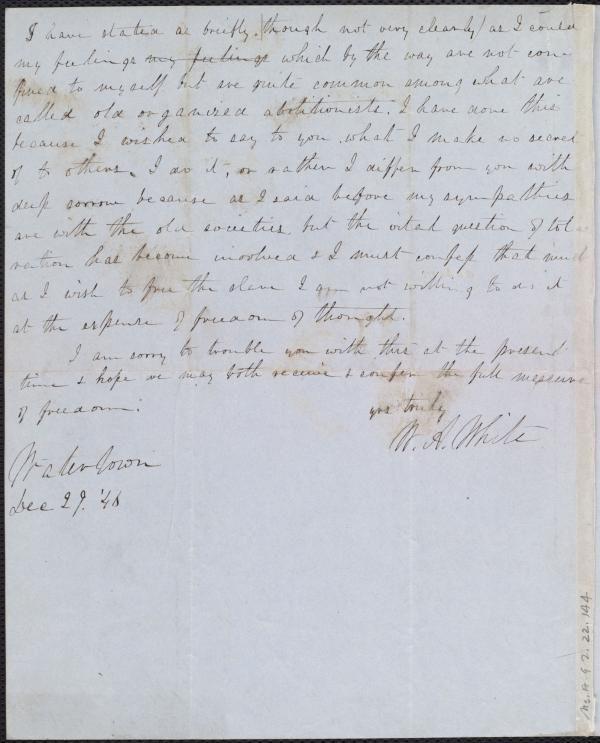 I have stated as briefly (though not very clearly) as I could
my feelings my feelings which by the way are not con-
fined to myself but are quite common among what are
called old organized abolitionists. I have done this
because I wished to say to you what I make no secret
of to others. I do it, or rather I differ from you with
deep sorrow because as I said before my sympathies
are with the old societies, but the vital question of tol-
eration has become involved & I must confess that much
as I wish to free the slave I am not willing to do it
at the expense of freedom of thought.
I am sorry to trouble you with this at the present
time & hope we may both receive & confer the full measure
of freedom.
yrs truly
W. A. White
Watertown
Dec 29. '46
Ms. A. 9. 2. 22. 144